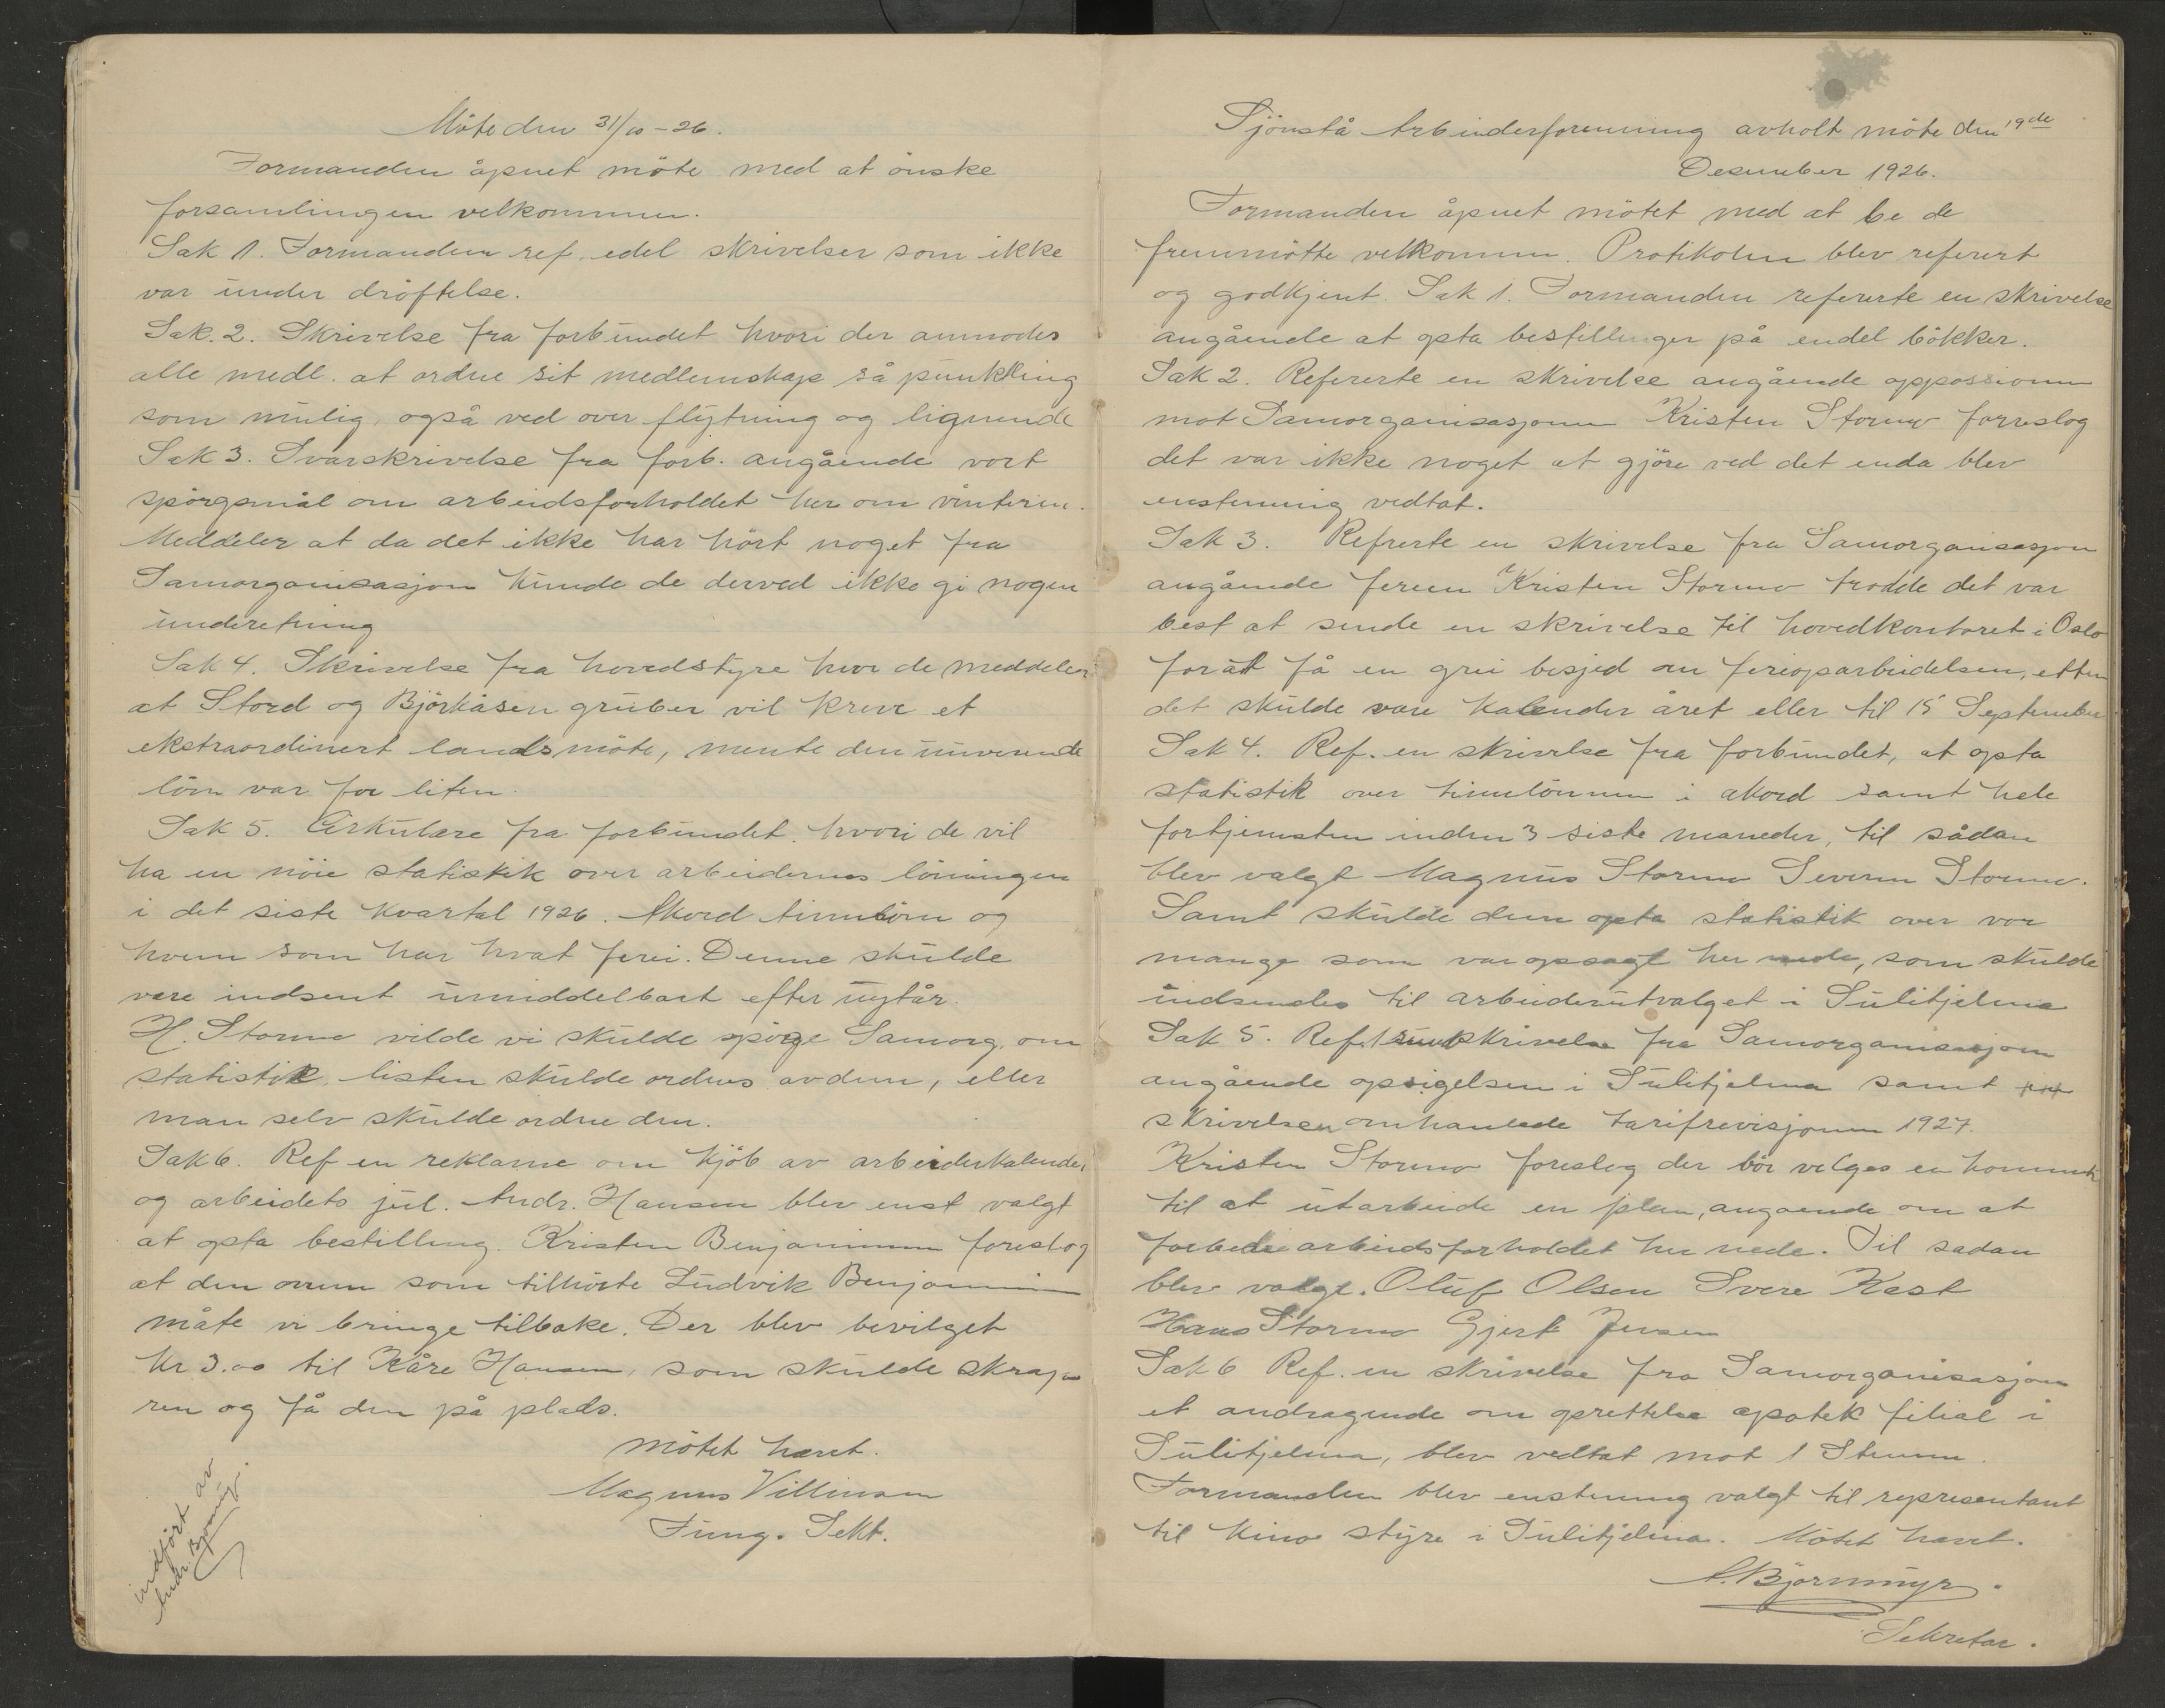 Möte den 31/10-26.
Formanden åpnet möte med at önske
forsamlingen velkommen.
Sak 1. Formanden ref. edel skrivelser som ikke
var under dröftelse.
Sak. 2. Skrivelse fra forbundet hvori der anmodes
alle medl. at ordne sit medlemskap så punktling
som mulig, også ved over flytning og lignende
Sak 3. Svarskrivelse fra forb. angående vort
spörgsmål om arbeidsforholdet her om vinteren.
Meddeler at da det ikke har hört noget fra
Samorganisasjon kunde de derved ikke gi nogen
underetning
Sak 4. Skrivelse fra hovedstyre hvor de meddeler
at Stord og Björkåsen gruber vil kreve et
ekstraordinert landsmöte, mente den nuverende
lön var for liten.
Sak 5. Cirkulære fra forbundet. hvori de vil
ha en nöie statistik over arbeidernes lönningen
i det siste kvartal 1926. Akord timelönn og
hvem som har hvat ferei. Denne skulde
være indsent umiddelbart efter nytår.
H. Stormo vilde vi skulde spörge Samorg. om
statistik listen skulde ordnes av dem, eller
man selv skulde ordne den.
Sak 6. Ref en reklame om kjöb av arbeiderkalender
og arbeidets jul. Andr. Hansen blev enst valgt
at opta bestilling. Kristen Benjaminsen foreslog
at den ovnen som tilhörte Ludvik Benjamin
måte vi bringe tilbake. Der blev bevilget
kr 3.00 til Kåre Hansen, som skulde skrape
ren og få den på plads.
Mötet hævet.
Magnus Villinsen
Fung. Sekt.
indfört av
Andr. Bjormyr.
Sjönstå Arbeiderforenning avholt möte den 19de
Desember 1926.
Formanden åpnet mötet med at be de
fremmötte velkommen. Protikolen blev referert
og godkjent. Sak 1. Formanden refererte en skrivelse
angående at opta bestillinger på endel bökker.
Sak 2. Refererte en skrivelse angående oppossionen
mot Samorganisasjonen Kristen Stormo forreslog
det var ikke noget at gjöre ved det enda blev
enstemmig vedtat.
Sak 3. Refrerte en skrivelse fra Samorganisasjon
angående ferien Kristen Stormo trodde det var
best at sende en skrivelse til hovedkontoret i Oslo
for at få en grei besjed om ferieoparbeidelsen, etter
det skulde være kalender året eller til 15 September
Sak 4. Ref. en skrivelse fra forbundet, at opta
statistik over timelönnen i akord samt hele
fortjenesten inden 3 siste maneder, til sådan
blev valgt Magnus Stormo Severin Stormo.
Samt skulde dem opta statistik over vor
mange som var opsagt her nede, som skulde
indsendes til arbeiderutvalget i Sulitjelma
Sak 5. Ref. skrivelse fra Samorganisasjon
angående opsigelsen i Sulitjelma samt
skrivelsen omhanlede tarifrevisjonen 1927.
Kristen Stormo foreslog der bör velges en kommite
til at utarbeide en plan, angaende om at
forbedre arbeidsforholdet her nede. Til sadan
blev valgt. Oluf Olsen Svere Kast
Hans Stormo Gjert Jensen
Sak 6 Ref. en skrivelse fra Samorganisasjon
et andragende om oprettelse apotek filial i
Sulitjelma, blev vedtat mot 1 Stemme.
Formanden blev enstemmig valgt til representant
til kino styre i Sulitjelma. Mötet hævet.
A. Bjormmyr.
Sekretær.